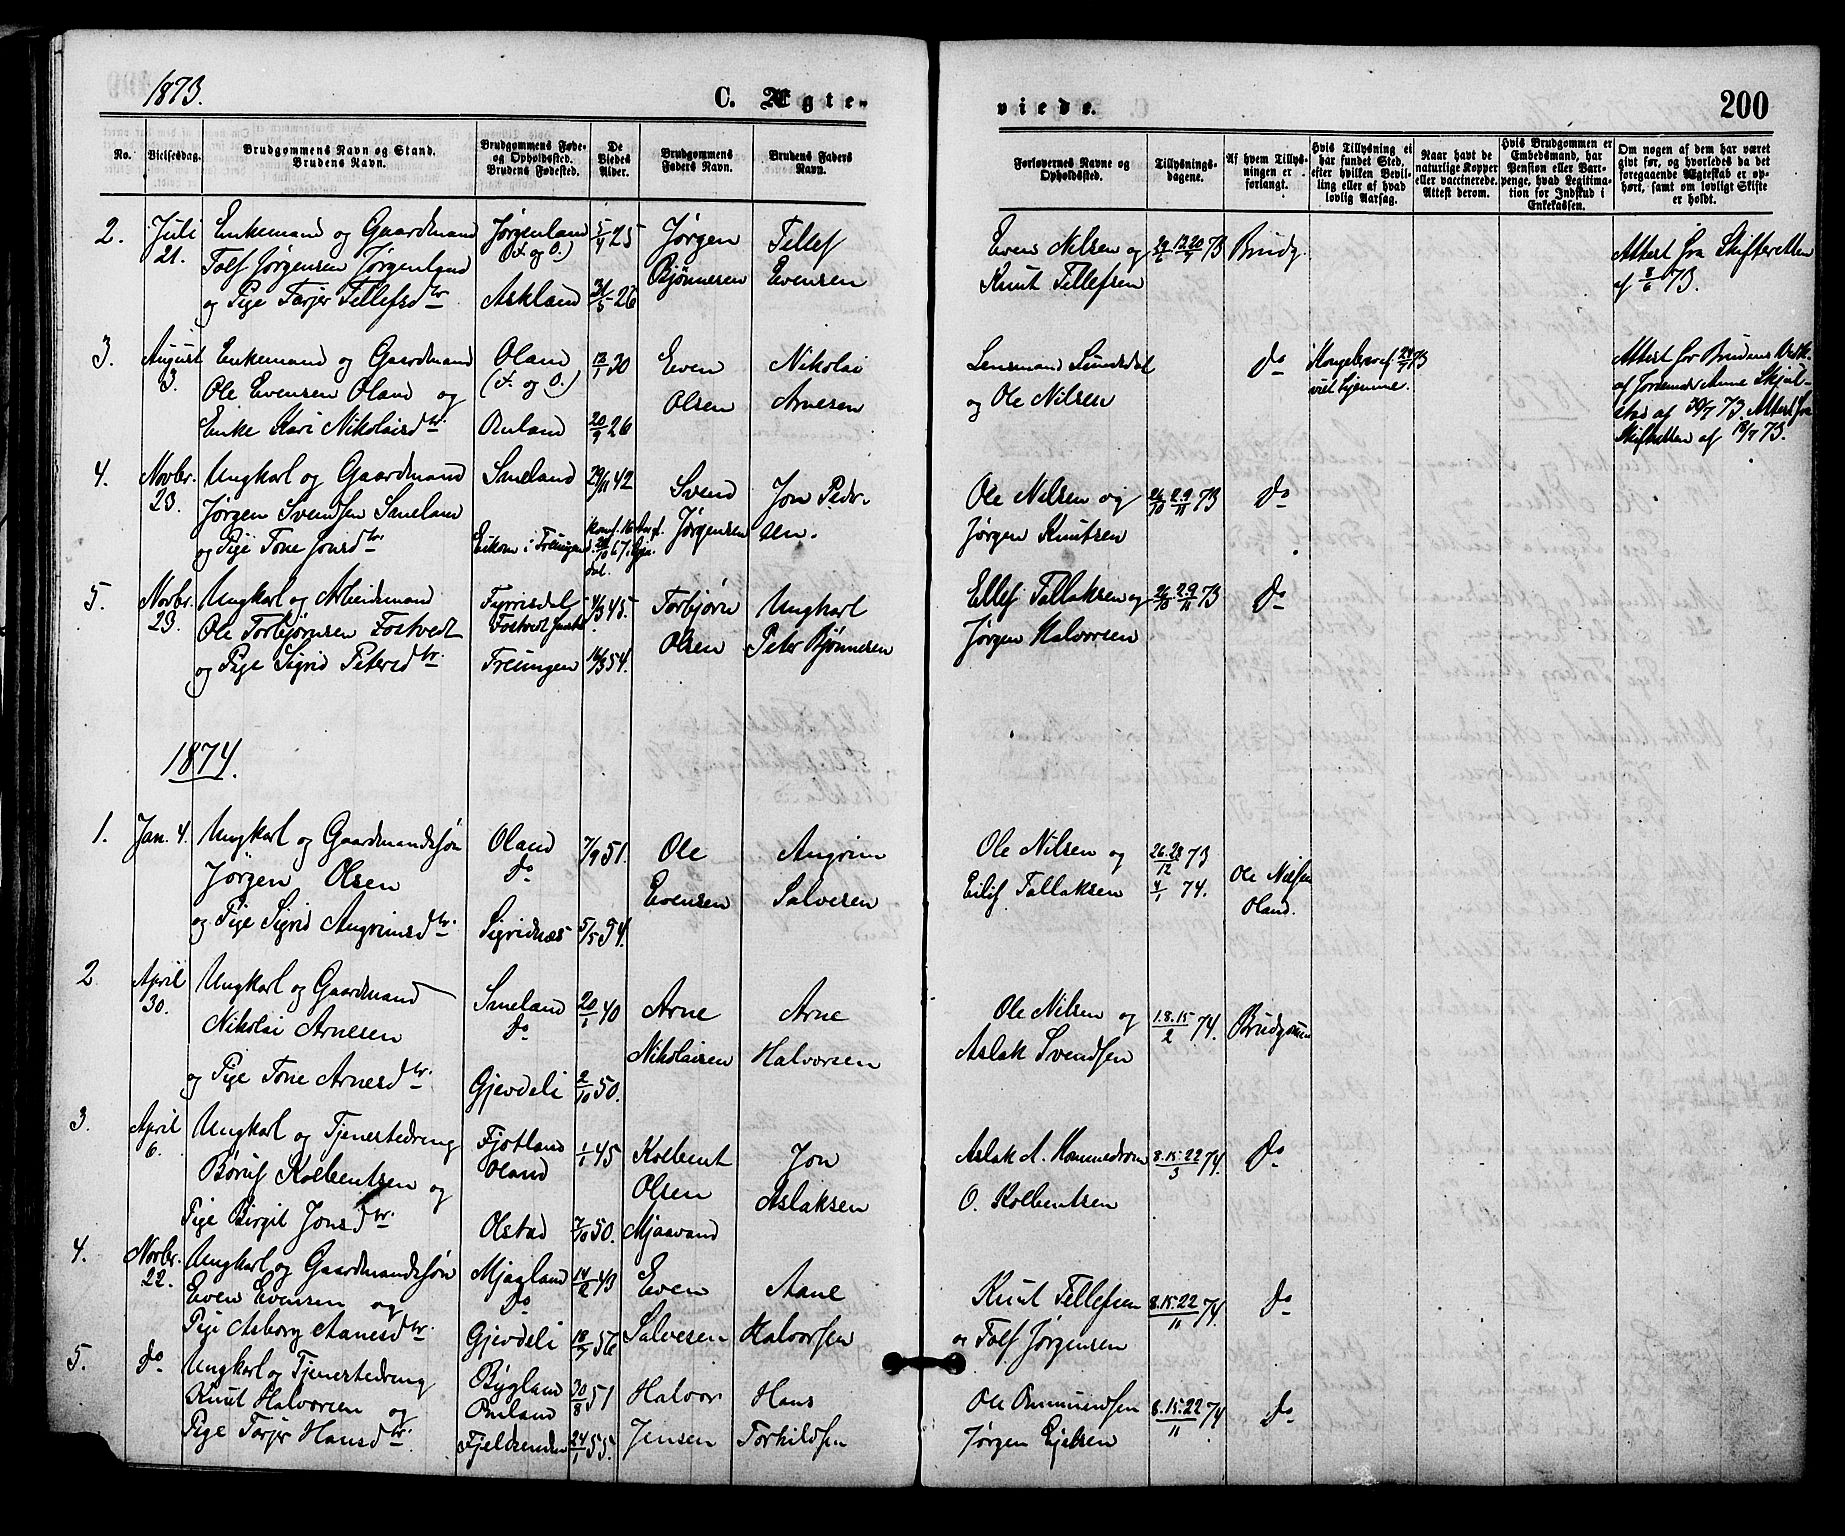 1873.
C. Ægte-
viede.
200
No.
Vielsesdag.
Brudgommens Navn og Stand.
Brudens Navn.
Brudgommens Føde-
og Opholdssted.
Brudens Fødested.
De
Viedes
Alder.
Brudgommens
Faders Navn.
Brudens Faders
Navn.
Forlovernes Navne og
Opholdssted.
Tillysnings-
dagene.
Af hvem Tillys-
ningen er
forlangt.
Hvis Tillysning ei
har fundet Sted,
efter hvilken Bevil-
ling eller af hvad
lovlig Aarsag.
Naar havt de
naturlige Kopper
eller vaccinerede.
Attest derom.
Hvis Brudgommen er
Embedsmand, har
Pension eller Var-
penge, hvad Legitima-
tion for Indskud i
Enkekassen.
Om nogen af dem har været
givt før, og hvorledes da det
foregaaende Ægteskab er op-
hørt, samt om lovligt Skifte
er holdt.
2. Juli 21.
Enkemand og Gaardmand
Tolf Jørgensen Jørgenland
og Pige Tarjer Tellefsdtr
Jørgenland
(F. og O.)
Askland
5/4 25
31/5 26
Jørgen
Bjønnesen
Tellef
Evensen
Even Nilsen og
Knut Tellefsen
29/6 13.20/7 73
Brudg.
Attest fra Skifteretten
af 8/6 73.
3. August 3.
Enkemand og Gaardmand
Ole Evensen Oland og
Enke Kari Nikolaisdtr
Oland
(F. og O.)
Omland
12/1 30
20/9 26
Even
Olsen
Nikolai
Arnesen
Lensmand Sundsdal
og Ole Nilsen
do
Kongebrev af 24/7 73
viet hjemme.
Attest for Brudens Vedk.
af 30/7 73. Attest fra
Skifteretten af 12/7 73.
4. Novbr. 23.
Ungkarl og Gaardmand
Jørgen Svendsen Smeland
og Pige Tone Jonsdtr
Smeland
Eikom i Treungen
29/11 42
Svend
Jørgensen
Jon Peder-
sen.
Ole Nilsen og
Jørgen Knutsen
26/10 2.9/11 73
do
5. Novbr. 23.
Ungkarl og Arbeidsmand
Ole Torbjørnsen Fostvedt
og Pige Sigrid Petersdtr
Fyrrisdal
Treungen
4/3 45.
16/3 54.
Torbjørn
Olsen
Ungkarl
Peter Bjønnesen
Ellef Tallaksen og
Jørgen Halvorsen
26/10 2.9/11 73
do
1874.
1. Jan. 4.
Ungkarl og Gaardmandssøn
Jørgen Olsen
og Pige Sigrid Angrimsdtr.
Oland
do
Sigridnæs
7/9 51.
5/5 54.
Ole
Evensen
Angrim
Salvesen
Ole Nilsen og
Eilif Tallaksen
26.28/12 73
4/1 74.
Ole Nilsen
Oland.
2 April 30.
Ungkarl og Gaardmand
Nikolai Arnesen
og Pige Tone Arnesdtr.
Smeland
do
Gjevdeli
20/1 40
2/10 50.
Arne
Nikolaisen
Arne
Halvorsen
Ole Nilsen og
Aslak Svendsen
1.8.15/2 74.
Brudgommen
3. April 6.
Ungkarl og Tjenestedreng
Børuf Kolbentsen og
Pige Birgit Jonsdtr.
Fjotland
Oland
Olstad
1/1 45
7/10 50.
Kolbent
Olsen
Mjaavand
Jon
Aslaksen
Aslak A. Hommedrom
O. Kolbentsen
8.15.22/3 74.
do
4. Novbr. 22.
Ungkarl og Gaardmandssøn
Even Evensen og
Pige Asborg Aanesdtr
Mjaaland
do
Gjevdeli
14/12 43
18/7 56
Even
Salvesen
Aane
Halvorsen
Knut Tellefsen
og Tolf Jørgensen
8.15.22/11 74.
do
5. do
Ungkarl og Tjenestedreng
Knut Halvorsen og
Pige Tarjer Hansdtr.
Bygland
Omland
Fjeldsenden
30/8 51
24/1 55.
Halvor
Jensen
Hans
Torkildsen
Ole Ommundsen
Jørgen Ejelsen
8.15.22/11 74
do